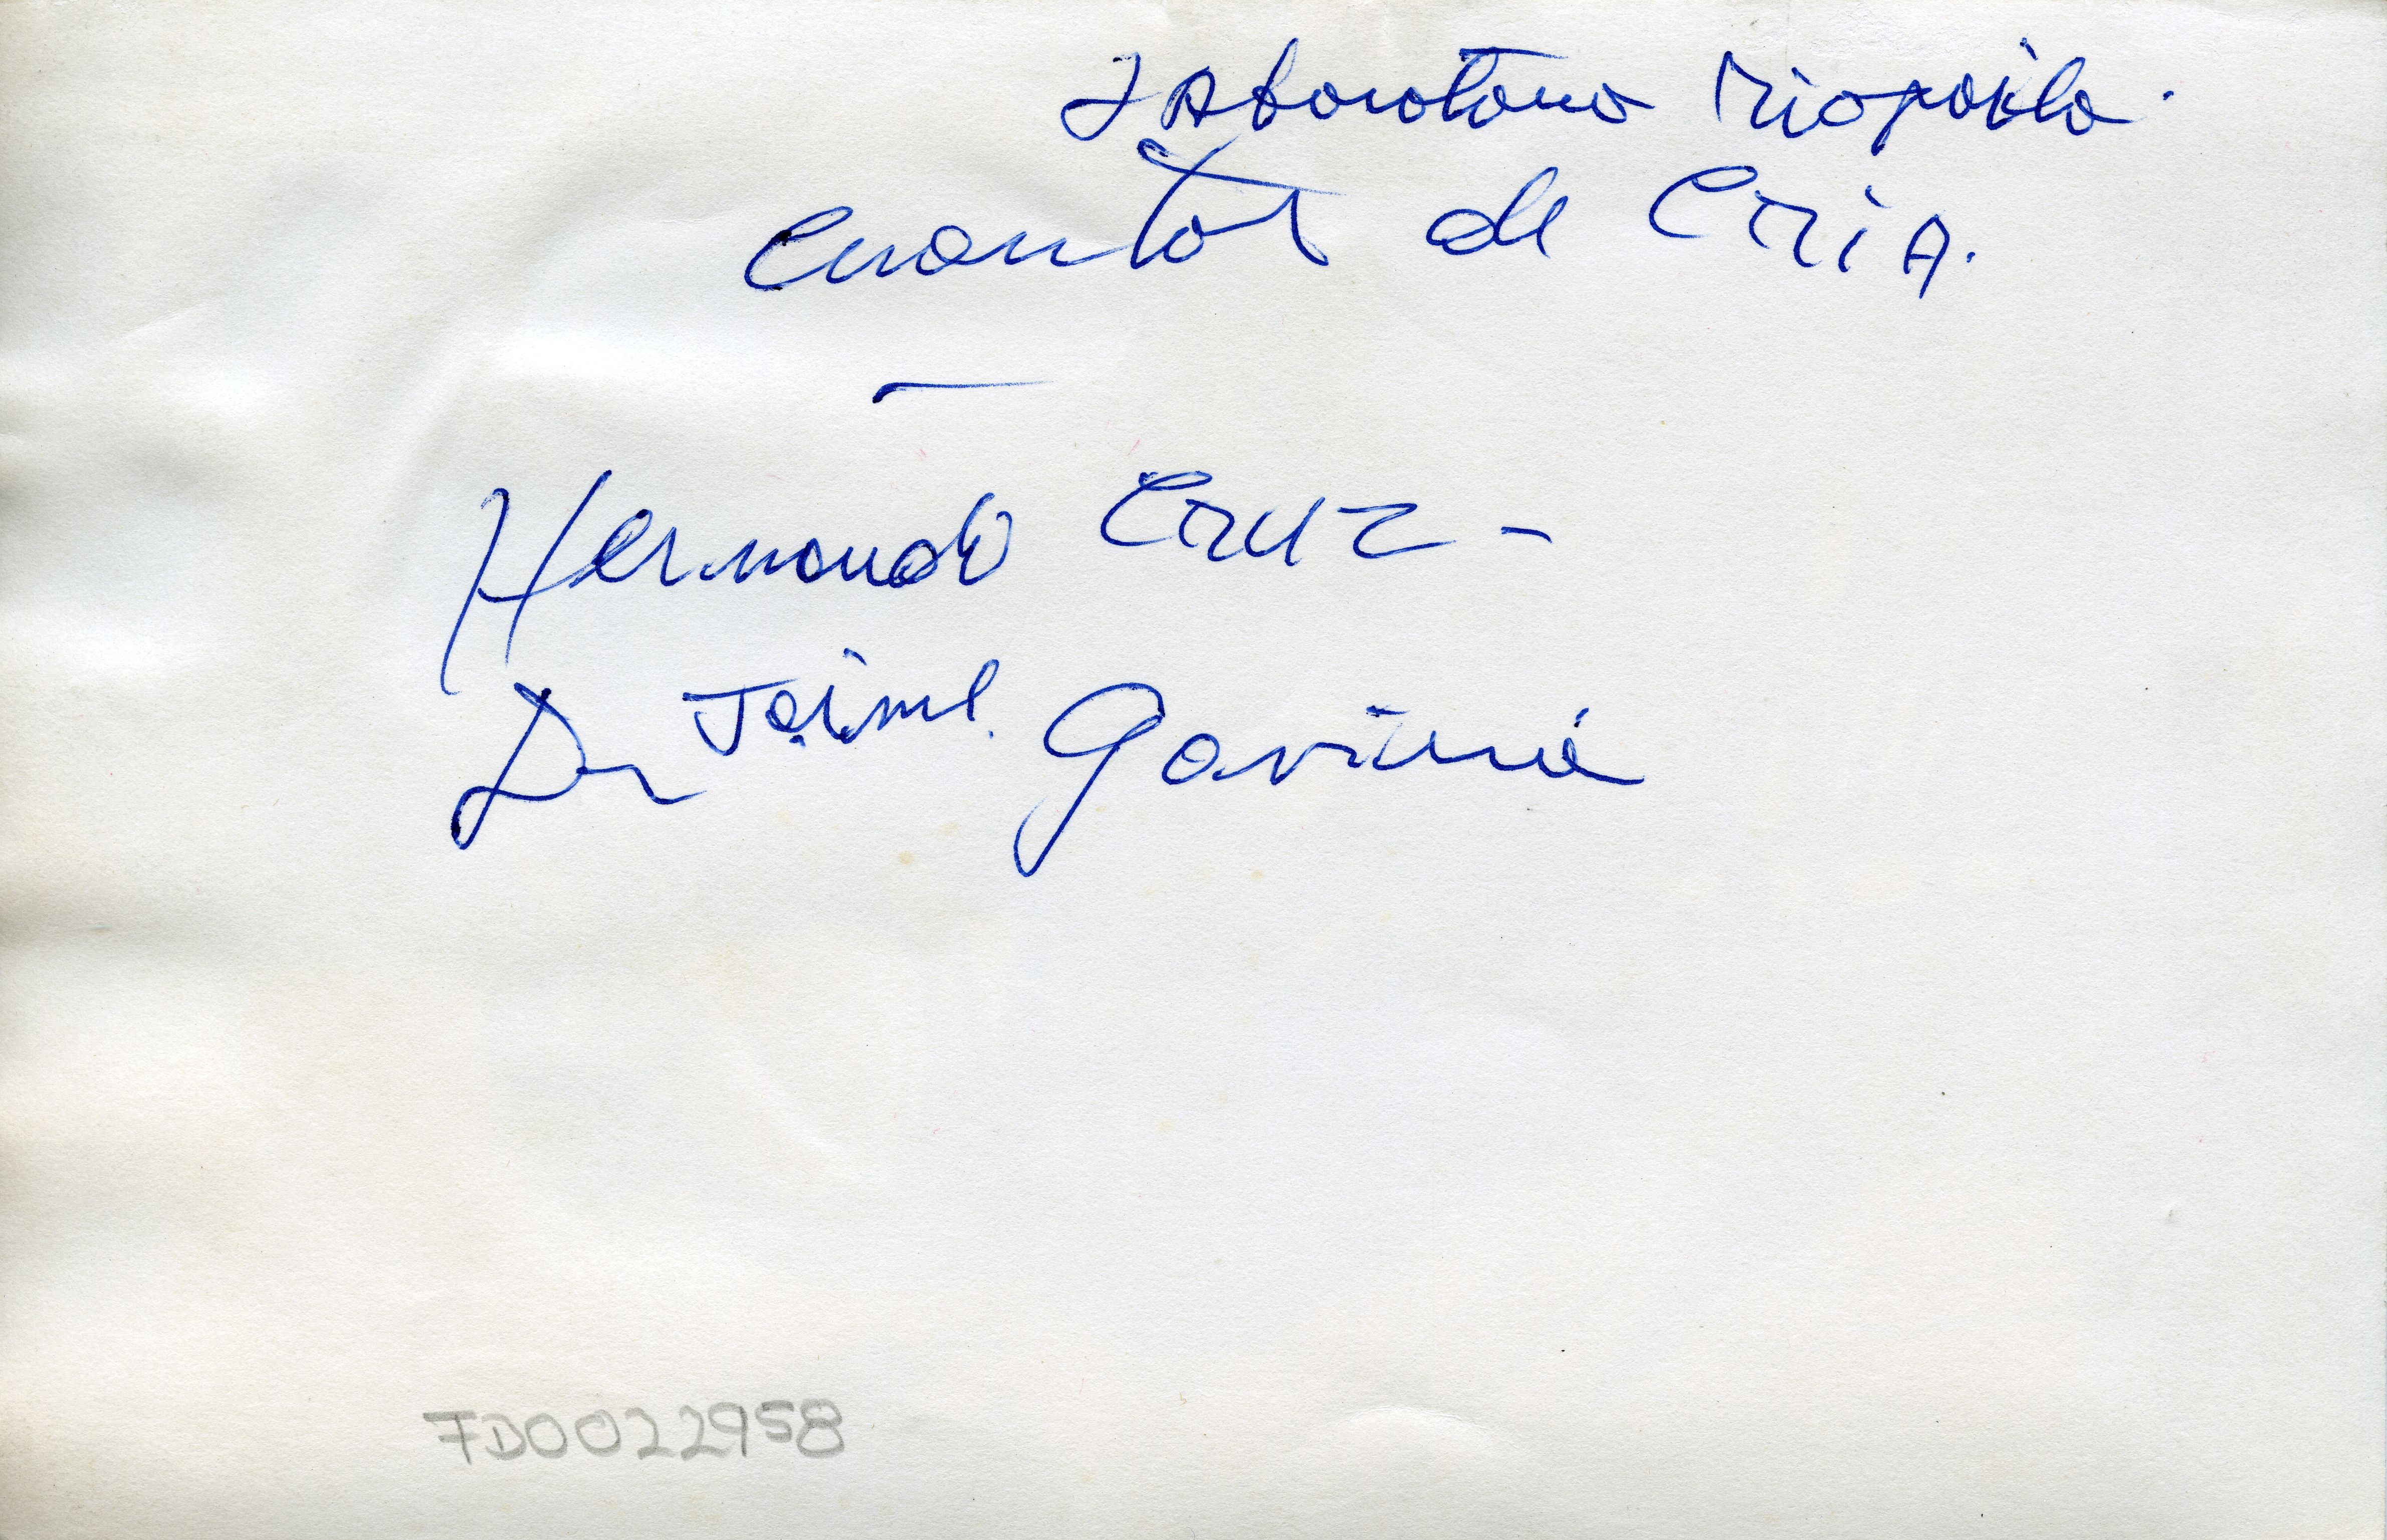 Laboratorio Riopaila.
Cuartos de CriA.
Hernando Cruz -
Dr Jaime. Gaviria
FD0022958